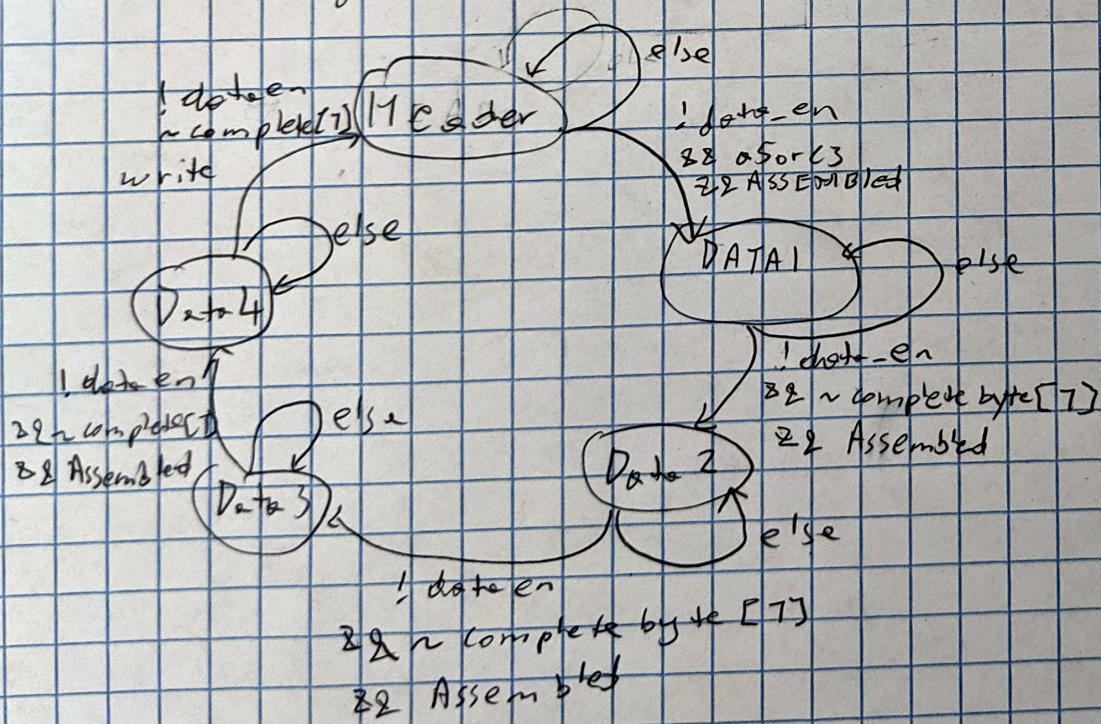 else
! data en
~ complete[7]
write
Header
! data_en
&& a5orc3
&& ASSEMBled
else
DATA1
else
Data 4
! data en
&& ~ complete[7]
&& Assembled
else
! data_en
&& ~ complete byte [7]
&& Assembled
Data 2
Data 3
else
! data en
&& ~ complete byte [7]
&& Assembled